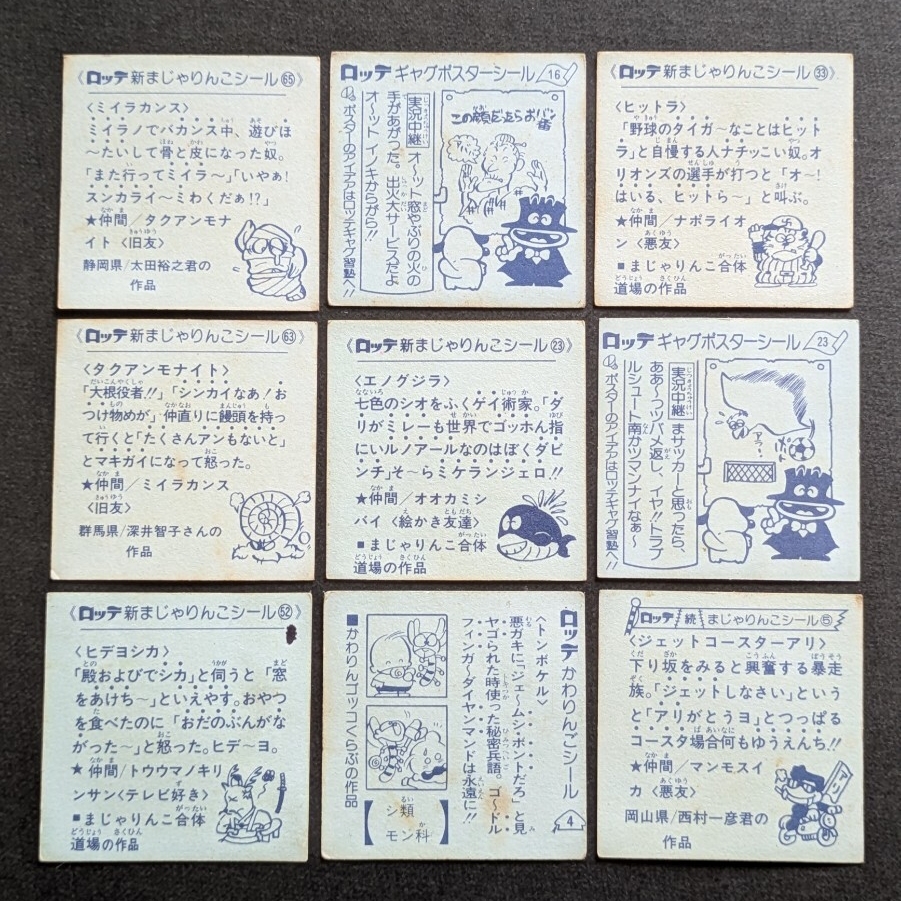 《ロッテ新まじゃりんこシール㊿》
〈ミイラカンス〉
ミイラノでバカンス中、遊びほ
～たいして骨と皮になった奴。
「また行ってミイラ～」「いやぁ!
スンカライ～ミわくだぁ!?」
★仲間/タクアンモナ
イト〈旧友〉
静岡県/太田裕之君の
作品
ロッテ ギャグポスターシール 16
この顔だったらおバン番
実況中継 オ～ット 窓やぶりの火の
手があがった。出火大サービスだよ
オ～ット イノキからがら!!
ポスターのアイデアはロッテギャグ習塾へ!!
《ロッテ新まじゃりんこシール㉝》
〈ヒットラ〉
「野球のタイガ～なことはヒット
ラ」と自慢する人ナチッこい奴。オ
リオンズの選手が打つと「オ～!
はいる、ヒットら～」と叫ぶ。
★仲間/ナポライオ
ン〈悪友〉
■まじゃりんこ合体
道場の作品
《ロッテ新まじゃりんこシール63》
〈タクアンモナイト〉
「大根役者!!」「シンカイなあ!お
つけ物めが」仲直りに饅頭を持っ
て行くと「たくさんアンもないと」
とマキガイになって怒った。
★仲間/ミイラカンス
〈旧友〉
群馬県/深井智子さんの
作品
《ロッテ新まじゃりんこシール㉓》
〈エノグジラ〉
七色のシオをふくゲイ術家。「ダ
リがミレーも世界でゴッホん指
にいルノアールなのはぼくダビ
ンチ」そ～らミケランジェロ!!
★仲間/オオカミシ
バイ〈絵かき友達〉
■まじゃりんこ合体
道場の作品
ロッテ ギャグポスターシール 23
アラ～、
実況中継 まサッカーと思ったら、
ああ～ッツバメ返し、イヤ!!トラブ
ルシュート南かツマンナイなぁ～
ポスターのアイデアはロッテギャグ習塾へ!!
《ロッテ新まじゃりんこシール52》
〈ヒデヨシカ〉
「殿およびでシカ」と伺うと「窓
をあけち～」といえやす。おやつ
を食べたのに「おだのぶんがな
がった～」と怒った。ヒデ～ヨ。
★仲間/トウウマノキリ
ンサン〈テレビ好き〉
■まじゃりんこ合体
道場の作品
ロッテ かわりんごシール 4
〈トンボケル〉
悪ガキに「ジェ～ムシ・ボンドだろ」と見
ヤゴられた時使った秘密兵語。ゴ～ルド
フィンガ～ダイヤンマンドは永遠に!!
シ類
モン科
■かわりんゴッコくらぶの作品
ロッテ 続 まじゃりんこシール⑤
〈ジェットコースターアリ〉
下り坂をみると興奮する暴走
族。「ジェットしなさい」という
と「アリがとうヨ」とつっぱる
コースタ場合何もゆうえんち!!
★仲間/マンモスイ
カ〈悪友〉
アリ
岡山県/西村一彦君の
作品